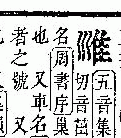 五音集
切音
名書序巢
也又車名
者之號又